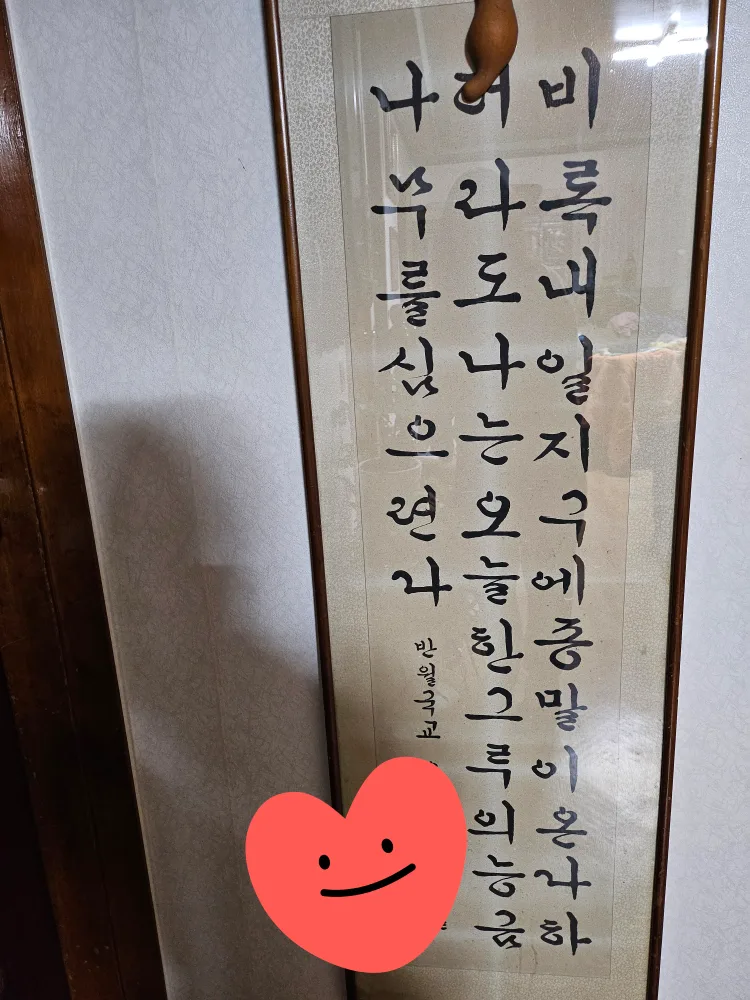 비록내일지구에종말이온다하
더라도나는오늘한그루의능금
나무를심으련다
반월국교